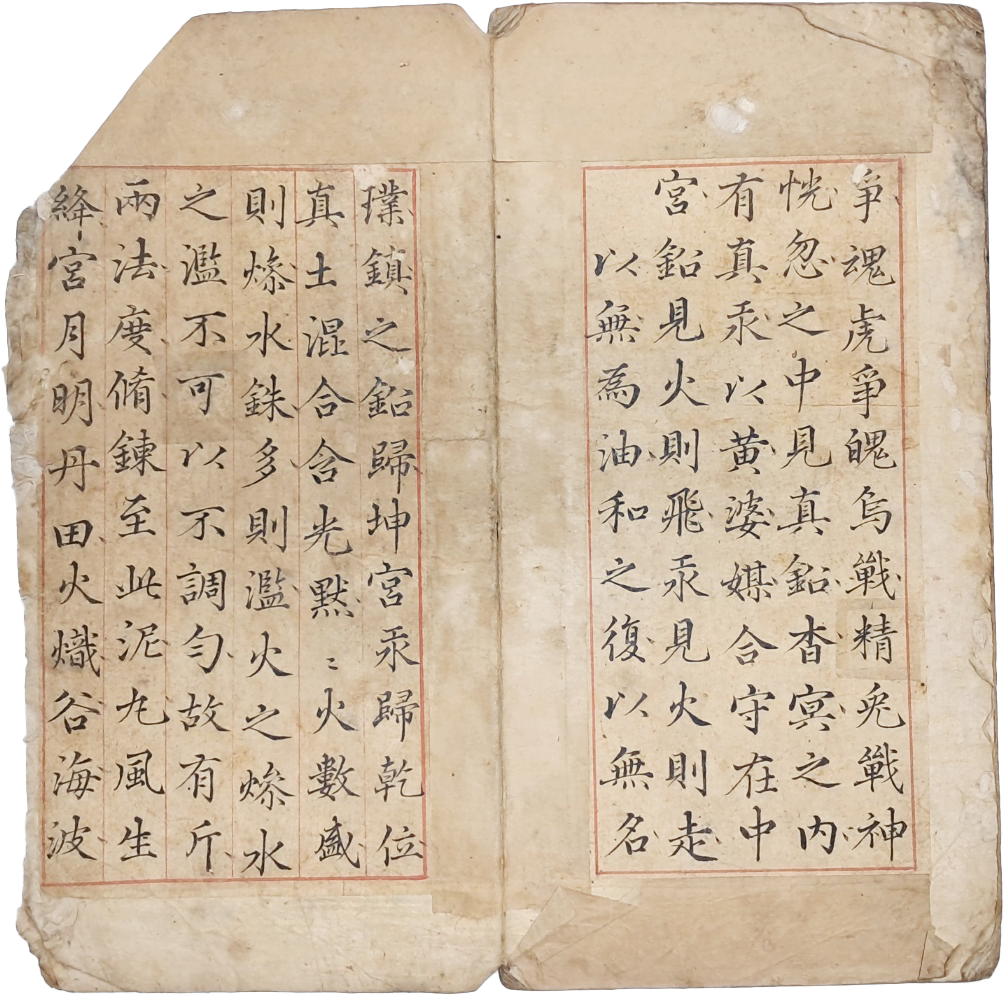 爭魂虎爭魄烏戰精兎戰神
恍忽之中見真鉛杳冥之内
有真汞以黄婆媒合守在中
宮鉛見火則飛汞見火則走
以無為油和之復以無名
璞鎮之鉛歸坤宮汞歸乾位
真土混合含光默〻火數盛
則燥水銖多則濫火之燥水
之濫不可以不調勻故有斤
兩法度脩鍊至此泥丸風生
絳宮月明丹田火熾谷海波